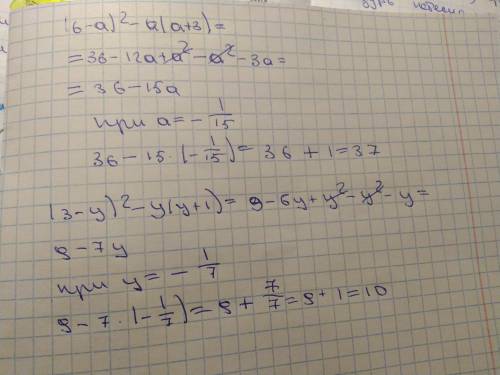 (6-a)²-a(a+3)=
=36-12a+a²-a²-3a=
=36-15a
при a=-1/15
36-15·(-1/15)=36+1=37
(3-y)²-y(y+1)=9-6y+y²-y²-y=
9-7y
при y=-1/7
9-7·(-1/7)=9+7/7=9+1=10